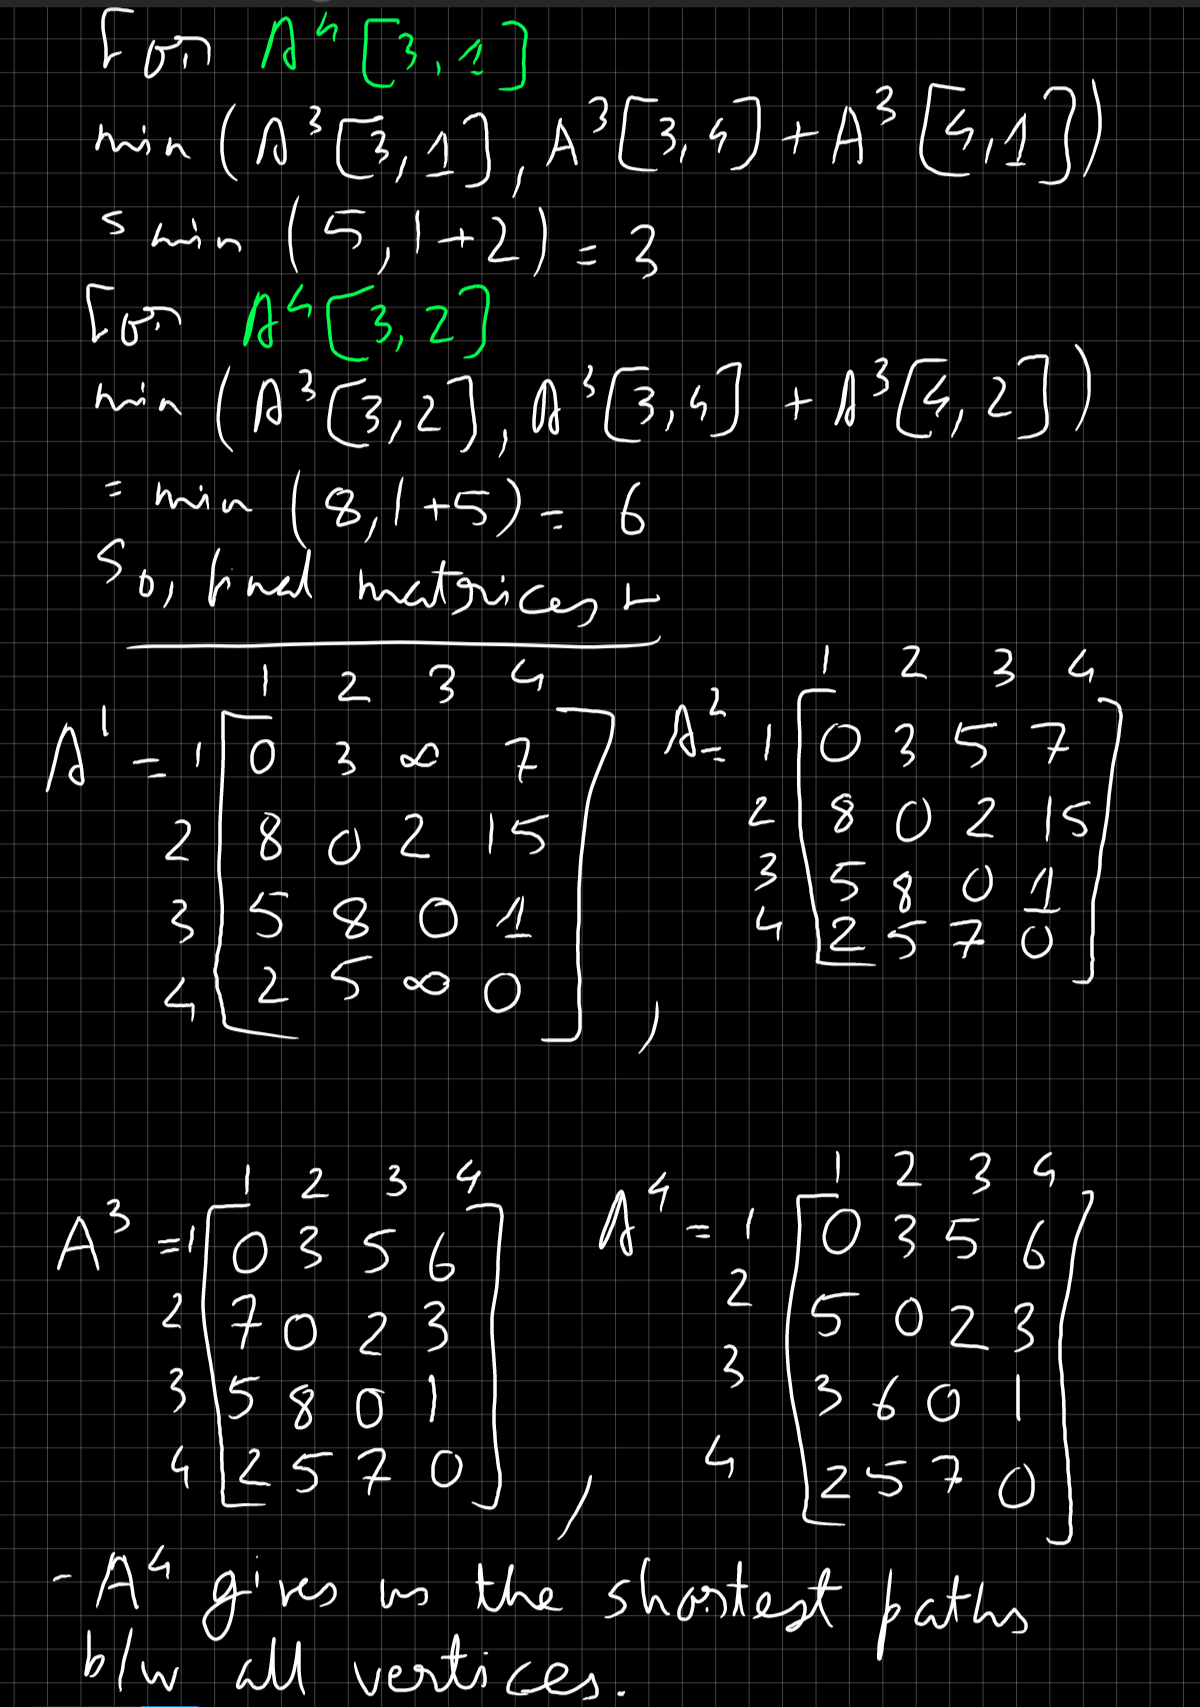 For A⁴[3,1]
min (A³[3,1], A³[3,4] + A³[4,1])
= min (5, 1+2) = 3
For A⁴[3,2]
min (A³[3,2], A³[3,4] + A³[4,2])
= min (8, 1+5) = 6
So, final matrices :-
1 2 3 4
A¹ = 1 [0 3 ∞ 7
2 8 0 2 15
3 5 8 0 1
4 2 5 ∞ 0] ,
1 2 3 4
A² = 1 [0 3 5 7
2 8 0 2 15
3 5 8 0 1
4 2 5 7 0]
1 2 3 4
A³ = 1 [0 3 5 6
2 7 0 2 3
3 5 8 0 1
4 2 5 7 0] ,
1 2 3 4
A⁴ = 1 [0 3 5 6
2 5 0 2 3
3 3 6 0 1
4 2 5 7 0]
- A⁴ gives us the shortest paths
b/w all vertices.